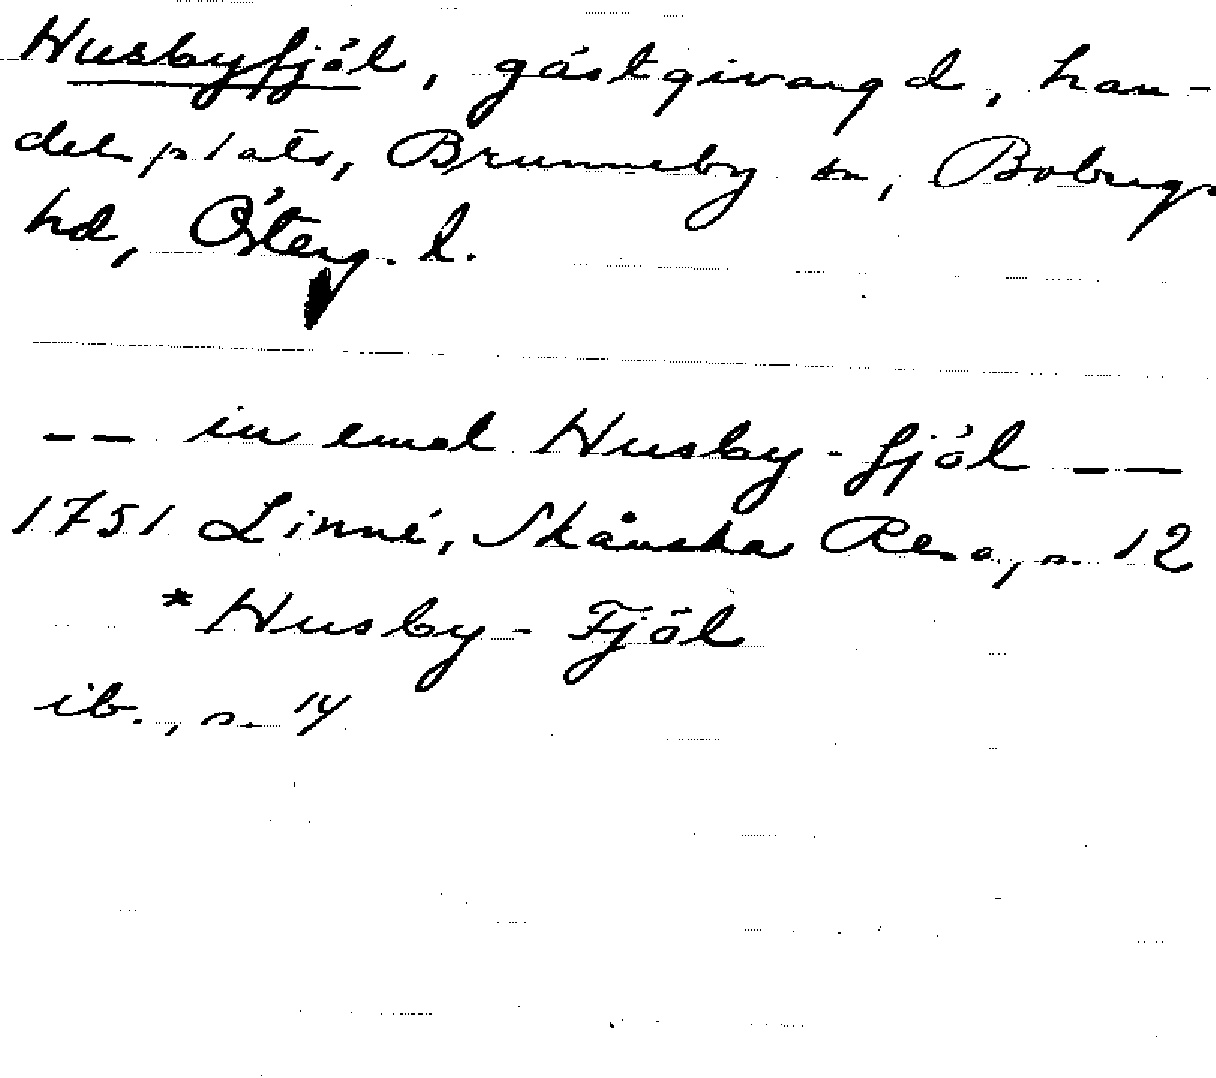 Husbyfjöl, gästgivargd, han-
delsplats, Brunneby sn, Bobergs
hd, Österg. l.
-- in emot Husby-fjöl --
1751 Linné, Skånska Resa, s. 12
* Husby-Fjöl
ib., s. 14